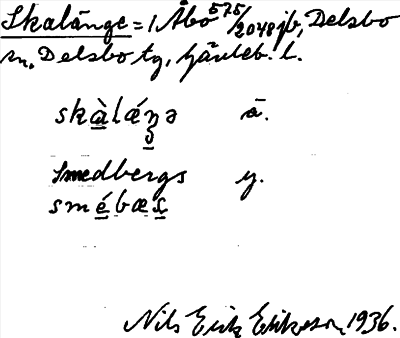 Skalänge = 1 Åbo 575/2048 jb, Delsbo
sn, Delsbo tg, Gävleb. l.
skàlǽŋə ā.
Smedbergs y.
smébæs
Nils Erik Eriksson, 1936.